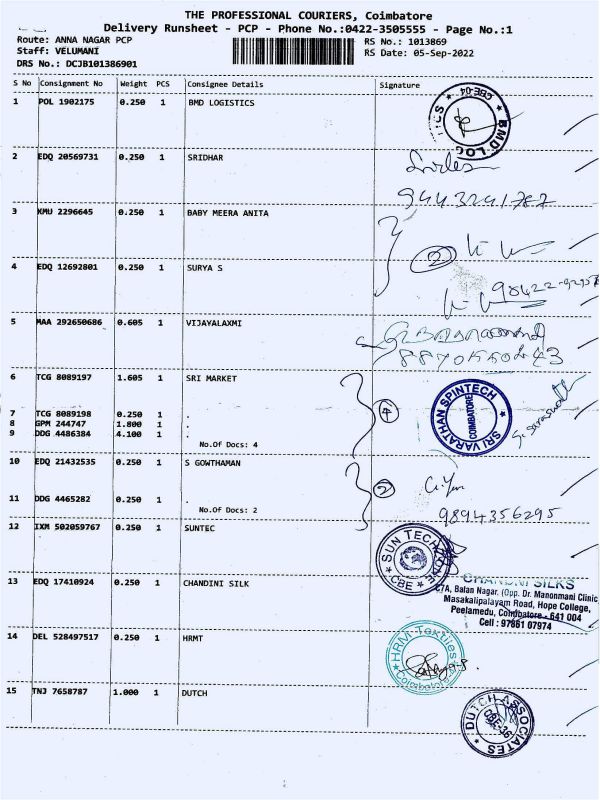 THE PROFESSIONAL COURIERS, Coimbatore
Delivery Runsheet - PCP - Phone No.:0422-3505555 - Page No.:1
Route: ANNA NAGAR PCP
RS No.: 1013869
Staff: VELUMANI
RS Date: 05-Sep-2022
DRS No.: DCJB101386901
S No Consignment No Weight PCS Consignee Details Signature
1 POL 1902175 0.250 1 BMD LOGISTICS
CBE-04
BMD LOGISTICS
2 EDQ 20569731 0.250 1 SRIDHAR
9443241787
3 KMU 2296645 0.250 1 BABY MEERA ANITA
2
4 EDQ 12692801 0.250 1 SURYA S
5 MAA 292650686 0.605 1 VIJAYALAXMI
6 TCG 8089197 1.605 1 SRI MARKET
SRI VARATHAN SPINTECH
COIMBATORE
7 TCG 8089198 0.250 1 .
4
8 GPM 244747 1.800 1 .
9 DDG 4486384 4.100 1 .
No.Of Docs: 4
10 EDQ 21432535 0.250 1 S GOWTHAMAN
2
11 DDG 4465282 0.250 1 .
No.Of Docs: 2
9894356295
12 IXM 502059767 0.250 1 SUNTEC
SUN TECH
CBE
13 EDQ 17410924 0.250 1 CHANDINI SILK
CHANDNI SILKS
C7A, Balan Nagar, (Opp. Dr. Manonmani Clinic
Masakalipalayam Road, Hope College,
Peelamedu, Coimbatore - 641 004
Cell : 97861 07974
14 DEL 528497517 0.250 1 HRMT
HRM Textiles
Coimbatore
15 TNJ 7658787 1.000 1 DUTCH
DUTCH ASSOCIATES
CBE-36